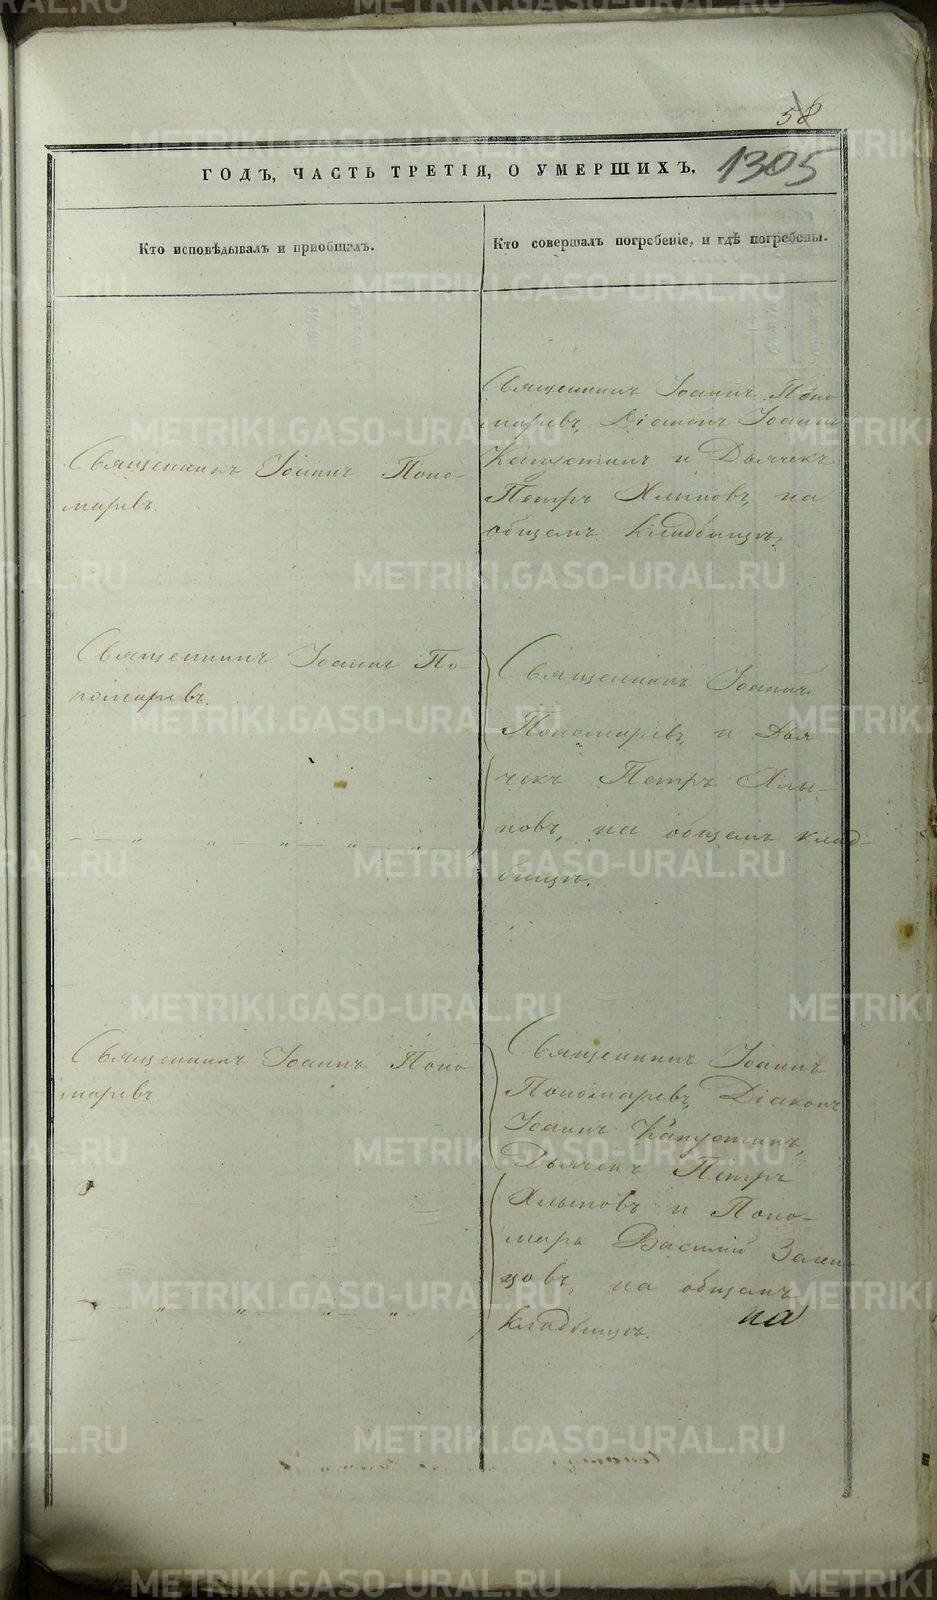 58
1305
ГОДЪ, ЧАСТЬ ТРЕТІЯ, О УМЕРШИХЪ.
Кто исповѣдывалъ и пріобщалъ.
Кто совершалъ погребеніе, и гдѣ погребены.
Священникъ Іоаннъ Поно-
маревъ.
Священникъ Іоаннъ Поно
маревъ, Діаконъ Іоаннъ
Капустинъ и Дьячекъ
Петръ Хлыновъ, на
общемъ кладбищѣ.
Священникъ Іоаннъ По-
номаревъ.
Священникъ Іоаннъ
Пономаревъ, и Дья
чекъ Петръ Хлы-
новъ, на общемъ клад-
бищѣ.
Священникъ Іоаннъ Поно
маревъ
Священникъ Іоаннъ
Пономаревъ, Діаконъ
Іоаннъ Капустинъ,
Дьячекъ Петръ
Хлыновъ и Поно-
марь Василій
на общемъ
кладбищѣ.
на
METRIKI.GASO-URAL.RU